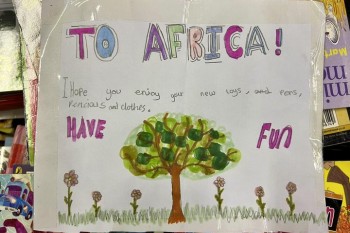 TO AFRICA!
I Hope you enjoy your new toys, and pens,
pencious and clothes.
HAVE FUN
Mar
mi
me